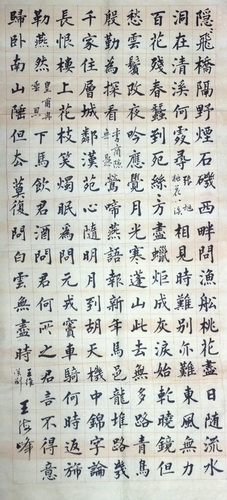 隱、飛橋隔野煙石磯西畔問漁船桃花盡日随流水
洞在清溪何處尋張旭桃花溪相見時難別亦難東風無力
百花殘春蠶到死絲方盡蠟炬成灰淚始乾曉鏡但
愁雲鬢改夜吟應覺月光寒蓬山此去無多路青鳥
殷勤為探看李商隱無題鶯啼燕語報新年馬邑龍堆路幾
千家住層城鄰漢苑心隨明月到胡天機中錦字論
長恨樓上花枝笑獨眠為問元戎竇車騎何時返旆
勒燕然皇甫冉春思下馬飲君酒問君何所之君言不得意
歸卧南山陲但去莫復問白雲無盡時王維送別